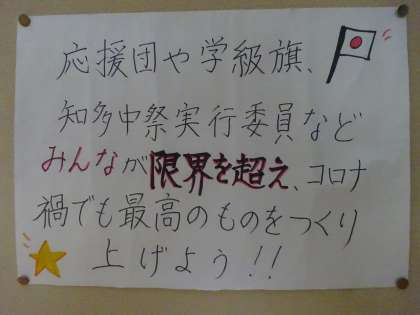 応援団や学級旗、
知多中祭実行委員など
みんなが限界を超え、コロナ
禍でも最高のものをつくり
上げよう!!